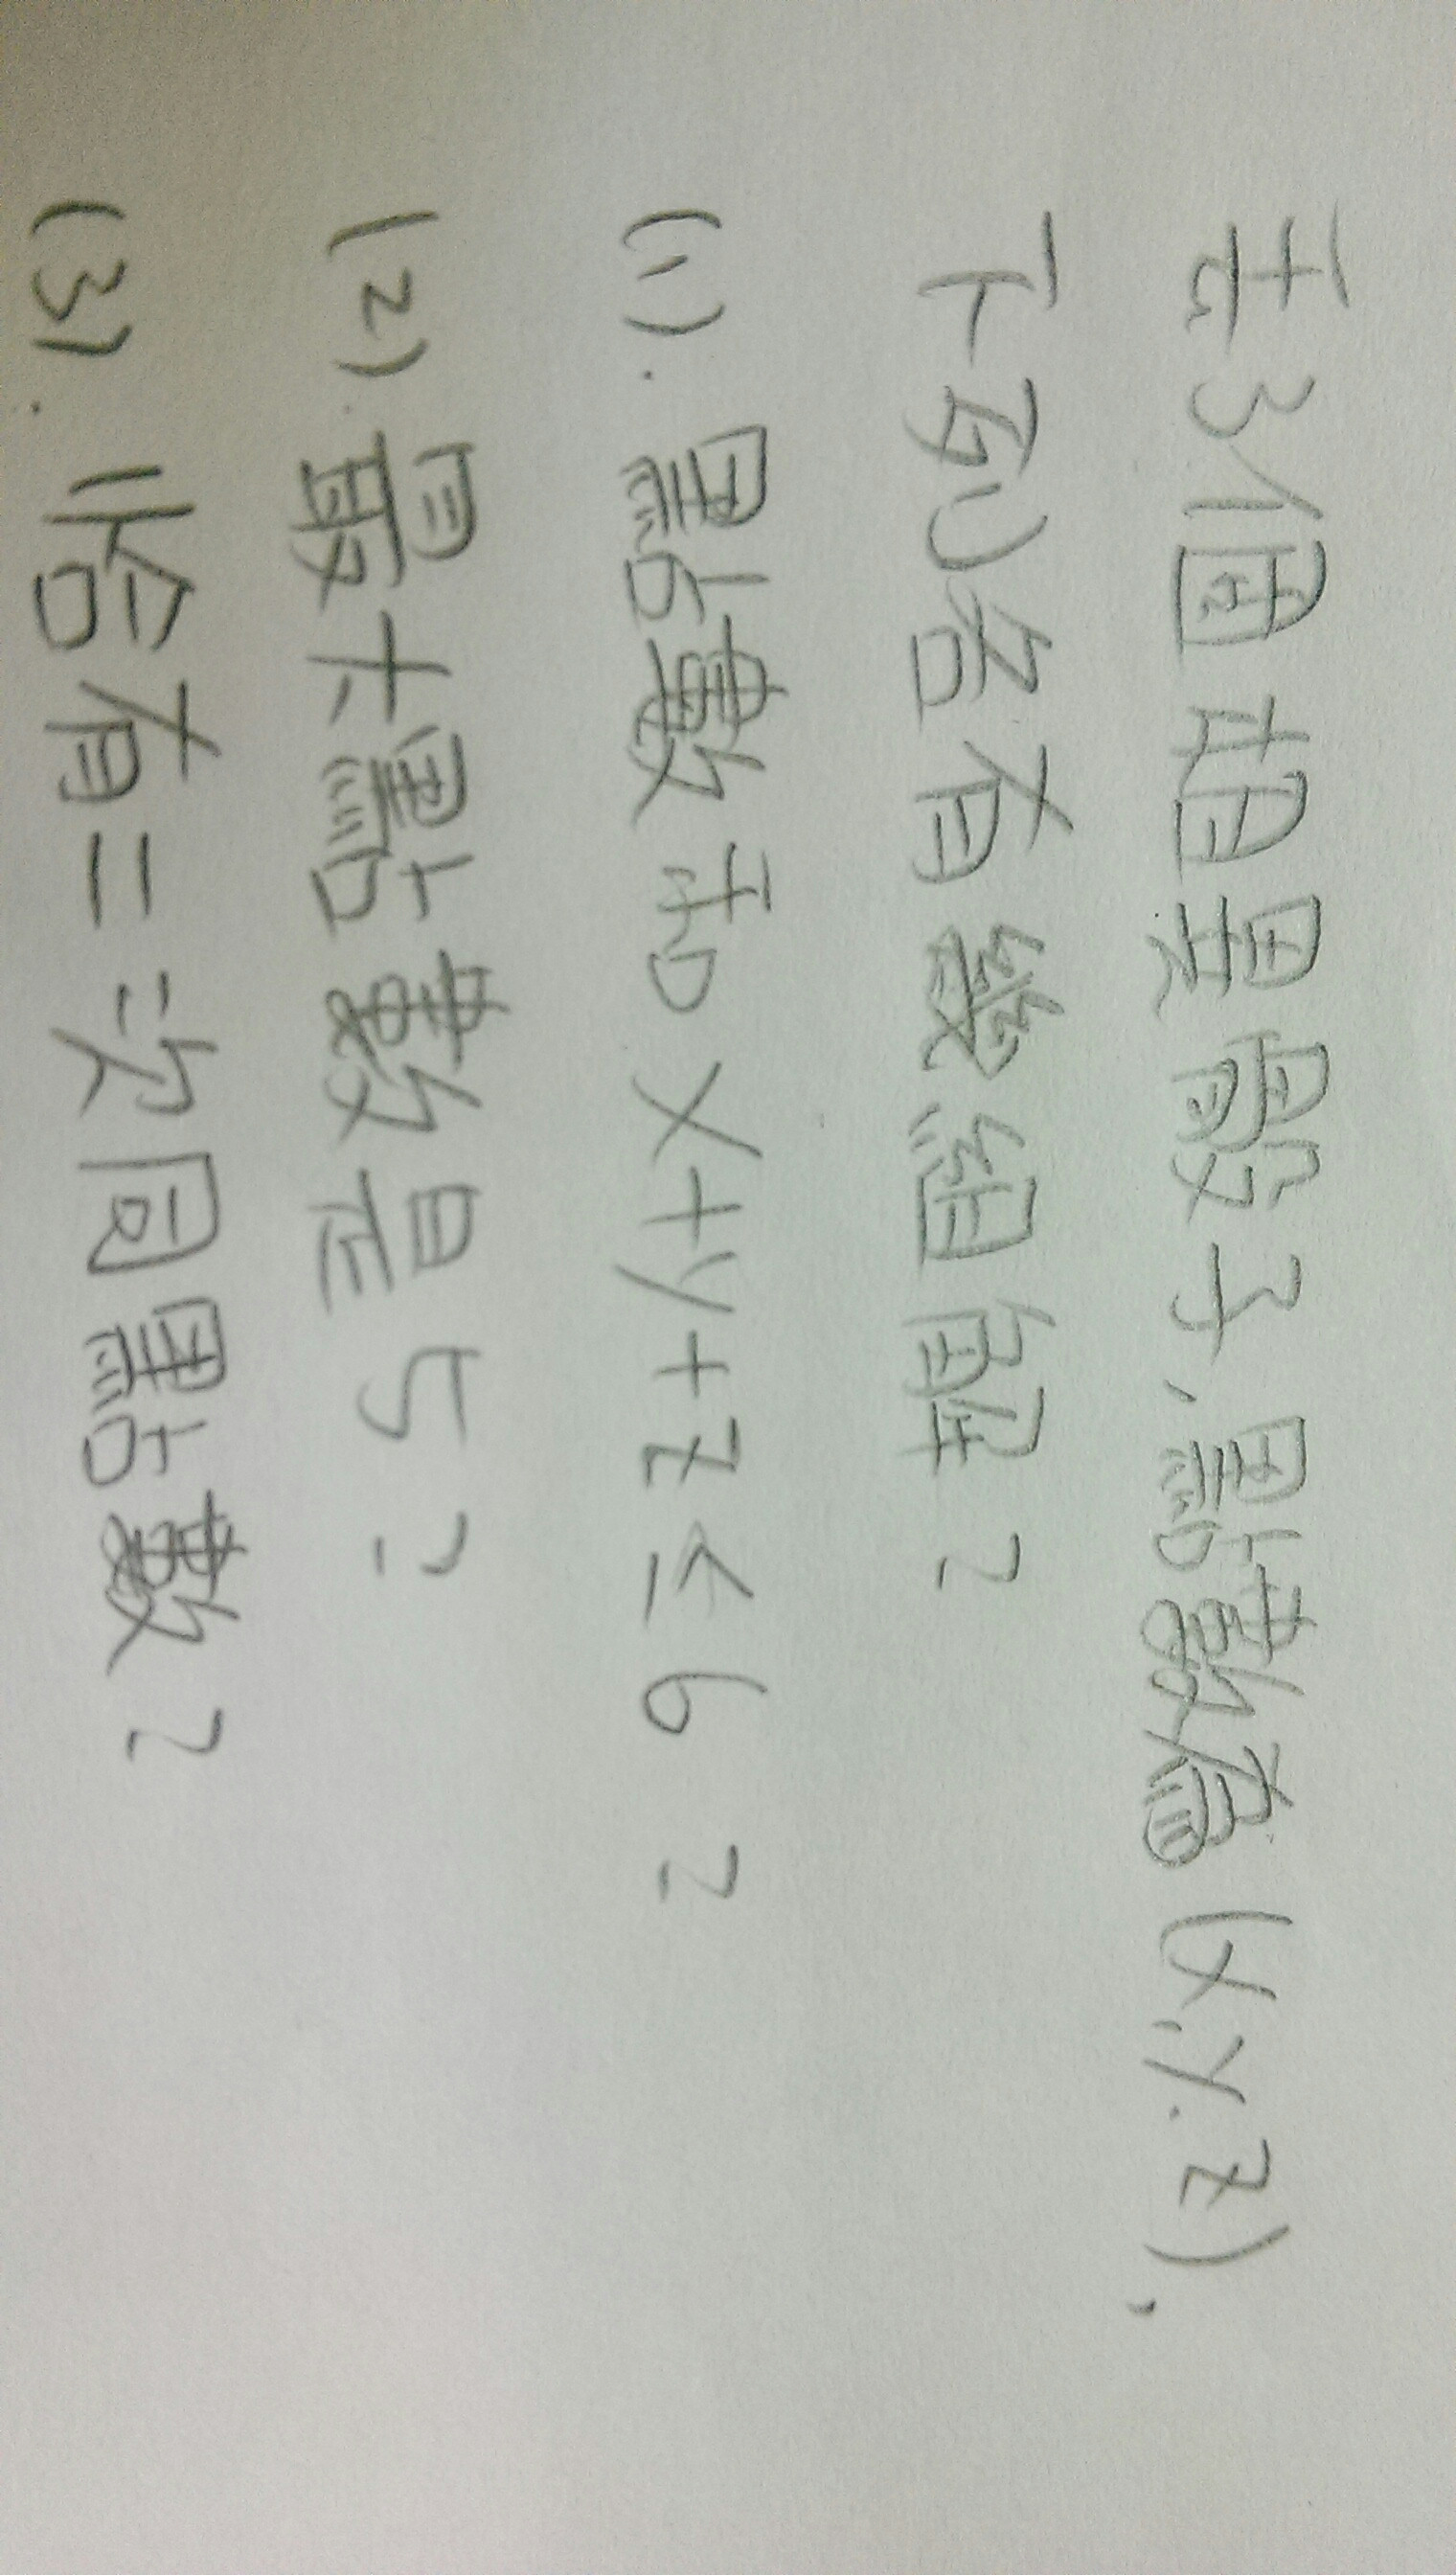 丟3個相異骰子,點數為(x,y,z),
下列各有幾組解?
(1). 點數和 x+y+z≤6 ?
(2). 最大點數是5?
(3). 恰有二次同點數?